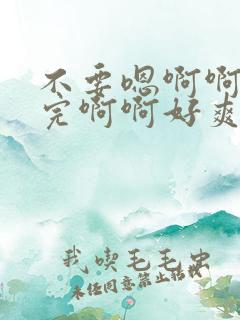 不要嗯啊啊
完啊啊好爽
我喫毛毛虫
未经同意禁止转载